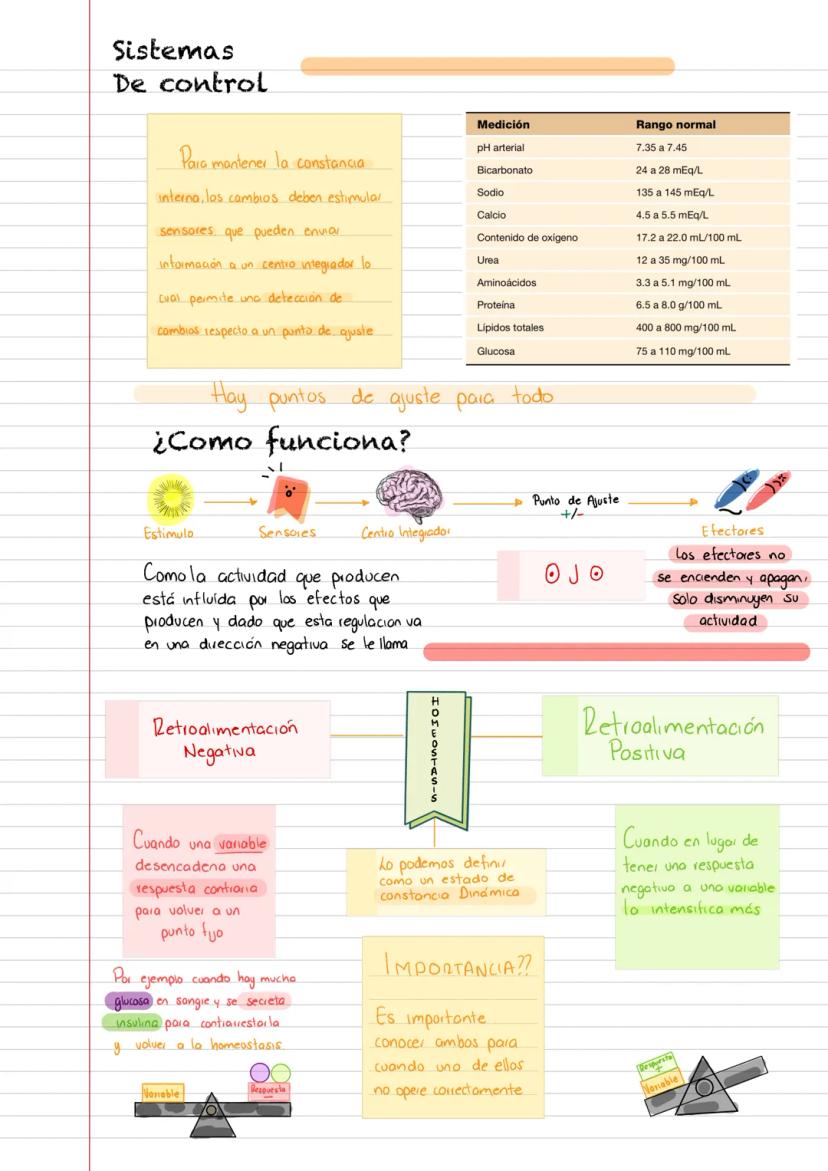 Sistemas
De control
Para mantener la constancia
interna, los cambios deben estimular
sensores que pueden enviar
información a un centro integrador lo
cual permite una detección de
cambios respecto a un punto de ajuste
Medición Rango normal
pH arterial 7.35 a 7.45
Bicarbonato 24 a 28 mEq/L
Sodio 135 a 145 mEq/L
Calcio 4.5 a 5.5 mEq/L
Contenido de oxígeno 17.2 a 22.0 mL/100 mL
Urea 12 a 35 mg/100 mL
Aminoácidos 3.3 a 5.1 mg/100 mL
Proteína 6.5 a 8.0 g/100 mL
Lípidos totales 400 a 800 mg/100 mL
Glucosa 75 a 110 mg/100 mL
Hay puntos de ajuste para todo
¿Como funciona?
Estimulo
Sensores
Centro Integrador
Punto de Ajuste
+/-
Efectores
Como la actividad que producen
está influída por los efectos que
producen y dado que esta regulacion va
en una dirección negativa se le llama
OJO
Los efectores no
se encienden y apagan,
solo disminuyen su
actividad
Retroalimentación
Negativa
HOMEOSTASIS
Retroalimentación
Positiva
Cuando una variable
desencadena una
respuesta contraria
para volver a un
punto fijo
Lo podemos definir
como un estado de
constancia Dinámica
Cuando en lugar de
tener una respuesta
negativa a una variable
la intensifica más
Por ejemplo cuando hay mucha
glucosa en sangre y se secreta
insulina para contrarrestarla
y volver a la homeostasis
IMPORTANCIA??
Es importante
conocer ambos para
cuando uno de ellos
no opere correctamente
Variable
Respuesta
-
Respuesta
+
Variable